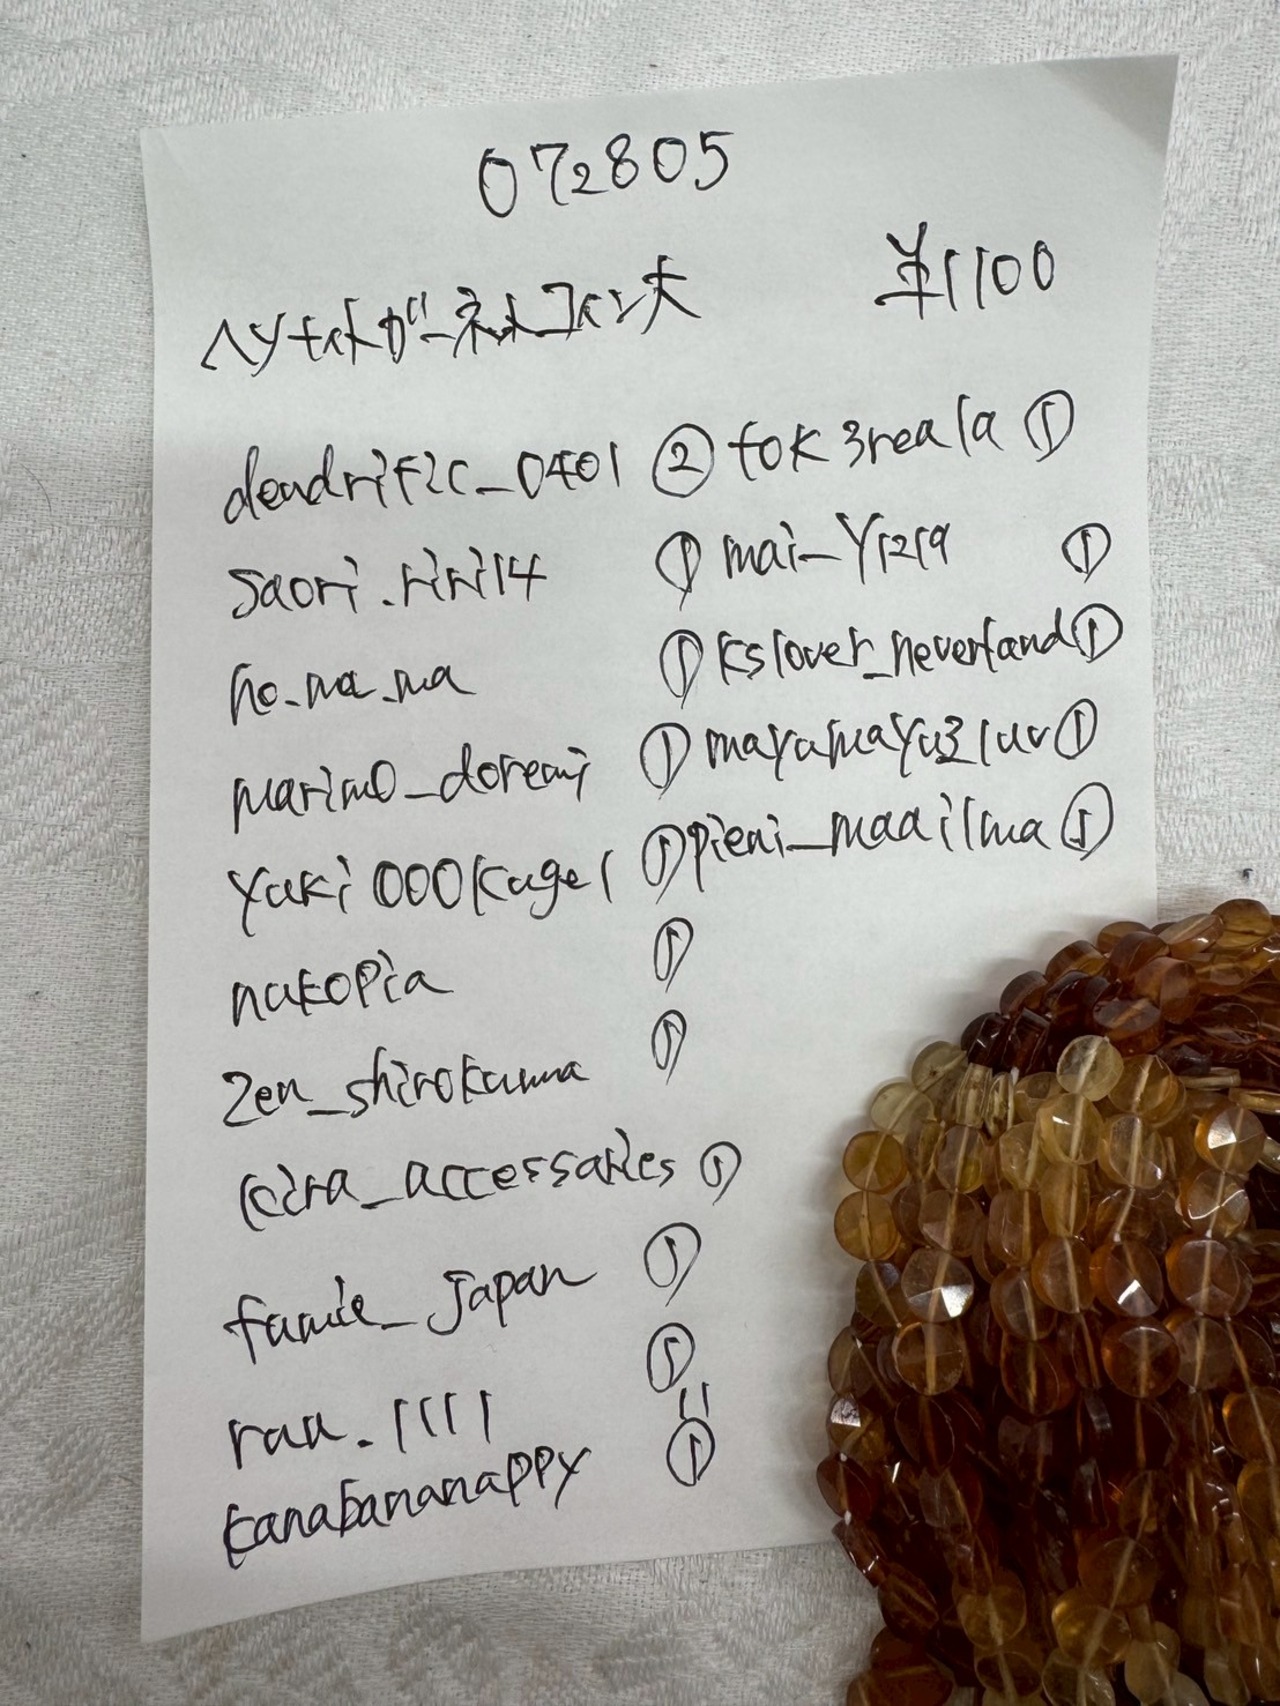 072805
ヘソナイトガーネットコイン大 ¥1100
dendrific_0401 ② tok3reala ①
saori.riri14 ① mai_y1219 ①
ho_na_na ① kslover_neverland ①
marimo_doremi ① mayumayu31uv ①
yuki000kage1 ① pieni_maailma ①
nakopia ①
zen_shirokuma ①
kira_accessories ①
famie_japan ①
rau.1111 ①
kanabananappy ①